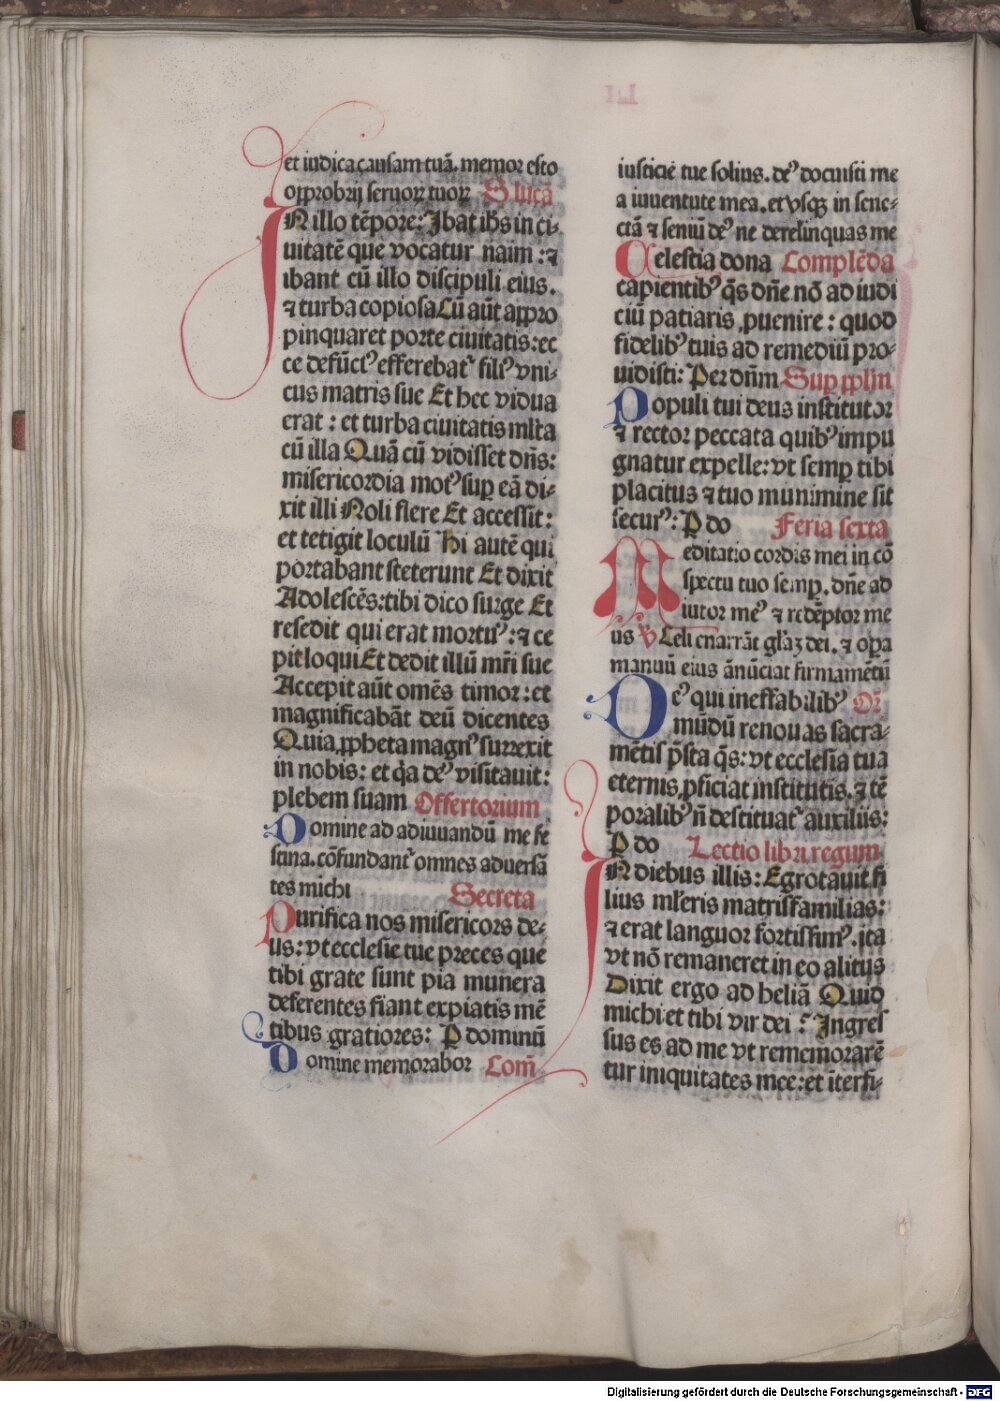 et iudica causam tuā. memor esto
opprobrij seruoꝝ tuoꝝ S lucā
IN illo tēpore: Ibat ihs in ci-
uitatē que vocatur naim: ⁊
ibant cū illo discipuli eius.
⁊ turba copiosa Cū aūt appro
pinquaret porte ciuitatis: ec
ce defūctꝰ efferebatʳ filiꝰ vni-
cus matris sue Et hec vidua
erat: et turba ciuitatis mlta
cū illa Quā cū vidisset dn̄s:
misericordia motꝰ suꝑ eā di-
xit illi Noli flere Et accessit:
et tetigit loculū Hi autē qui
portabant steterunt Et dixit
Adolescēs: tibi dico surge Et
resedit qui erat mortuꝰ: ⁊ ce
pit loqui Et dedit illū mr̄i sue
Accepit aūt omēs timor: et
magnificabāt deū dicentes
Quia ꝓpheta magnꝰ surrexit
in nobis: et q̇a deꝰ visitauit:
plebem suam Offertorium
Domine ad adiuuandū me fe
stina. cōfundantʳ omnes aduersā
tes michi Secreta
Purifica nos misericors de-
us: vt ecclesie tue preces que
tibi grate sunt pia munera
deferentes fiant expiatis mē
tibus gratiores: P dominū
Domine memorabor Com̄
iusticiē tue solius. deꝰ docuisti me
a iuuentute mea. et vsqꝫ in senec-
ctā ⁊ seniū deꝰ ne derelinquas me
Celestia dona Complēda
capientibꝰ q̄s dn̄e nō ad iudi
ciū patiaris ꝓuenire: quod
fidelibꝰ tuis ad remediū pro-
uidisti: Per dn̄m Suꝑ pplm
Populi tui deus institutor
⁊ rector peccata quibꝰ impu
gnatur expelle: vt semꝑ tibi
placitus ⁊ tuo munimine sit
securꝰ: P do Feria sexta
Meditatio cordis mei in cō
spectu tuo semꝑ. dn̄e ad
iutor meꝰ ⁊ redēptor me
us ℣ Celi enarrāt gl'aꝫ dei. ⁊ oꝑa
manuū eius ānūciat firmamētū
Deꝰ qui ineffabilibꝰ Or̄
mūdū renouas sacra-
mētis p̄sta q̄s: vt ecclesia tua
eternis ꝓficiat institutis. ⁊ tē
poralibꝰ n̄ destituatʳ auxiliis:
P do Lectio libri regum
IN diebus illis: Egrotauit fi
lius ml'eris matrisfamilias:
⁊ erat languor fortissimꝰ. ita
vt nō remaneret in eo alitus
Dixit ergo ad heliā Quid
michi et tibi vir dei? Ingres
sus es ad me vt rememorarē
tur iniquitates mee: et īterfi-
Digitalisierung gefördert durch die Deutsche Forschungsgemeinschaft - DFG